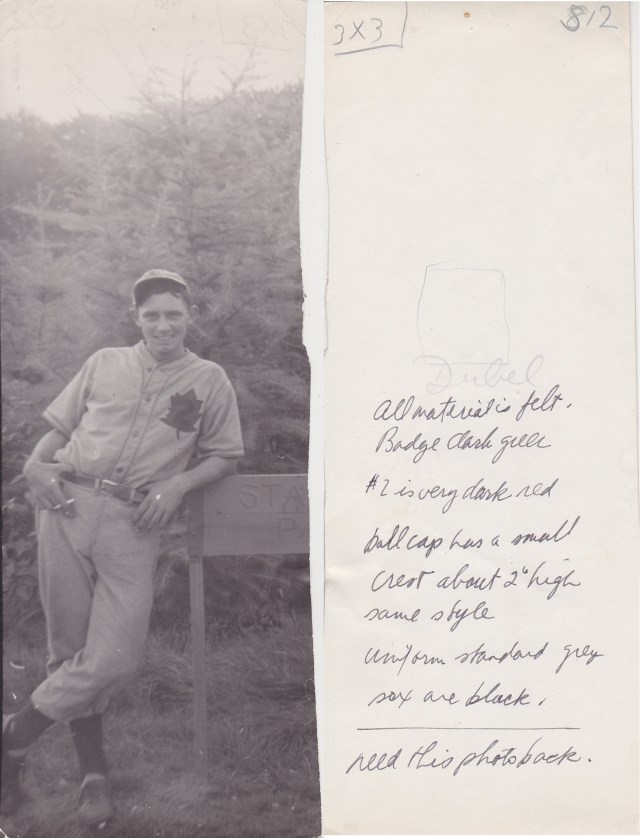 STA
P
3x3
812
Dubel
All material is felt.
Badge dark green
#2 is very dark red
ball cap has a small
crest about 2" high
same style
uniform standard grey
sox are black.
need this photo back.